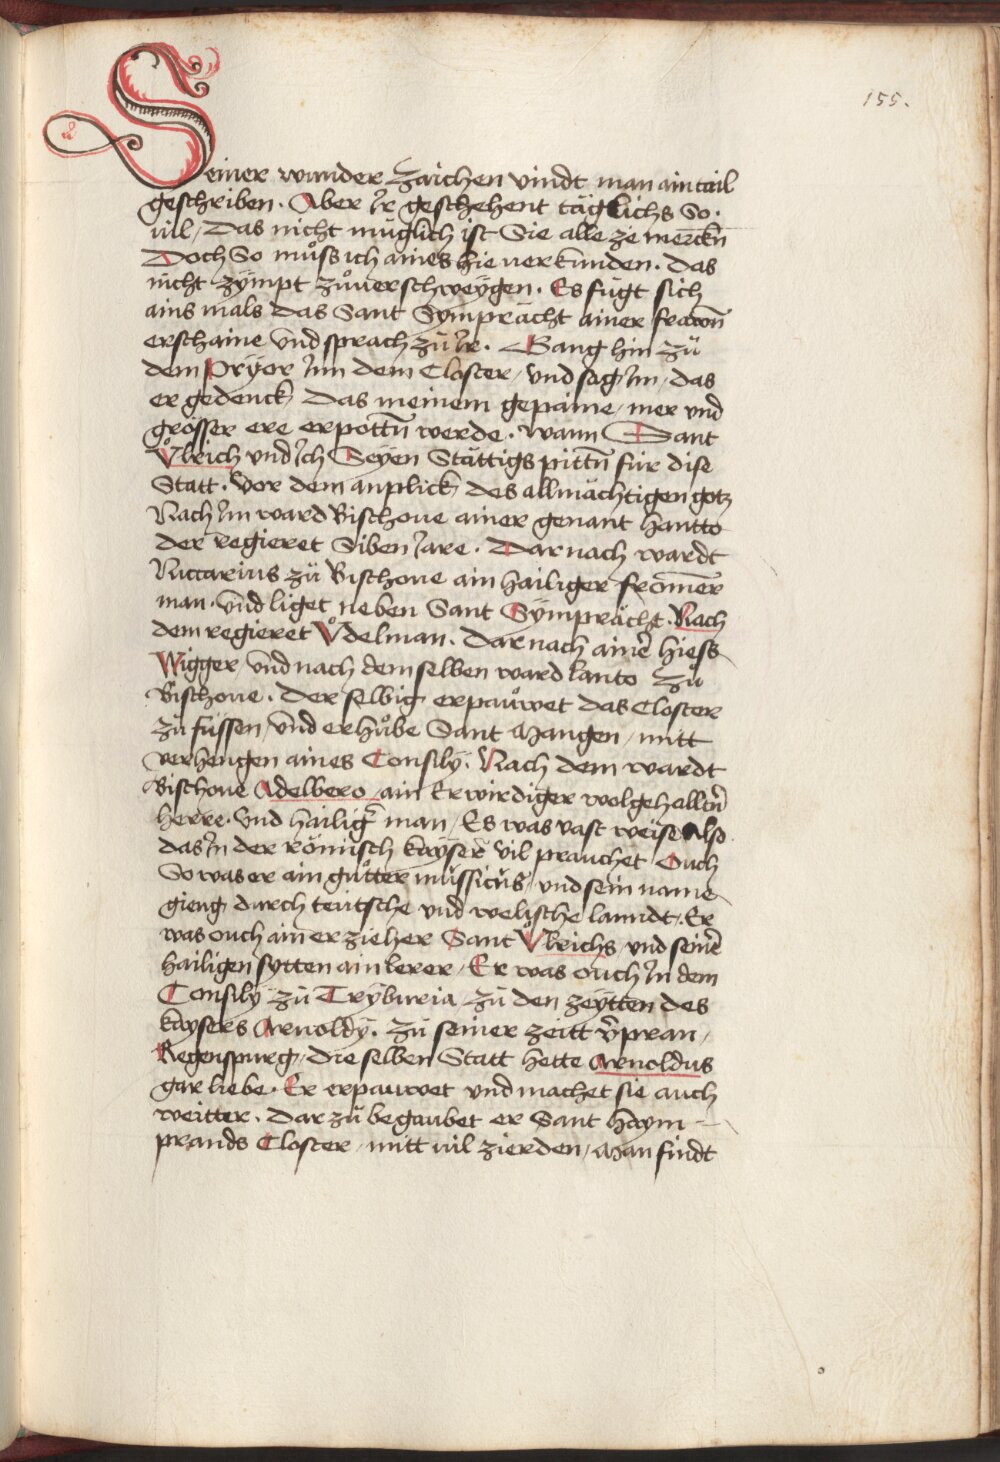 155.
Seiner wunder zaichen vindt man ain tail
geschriben. Aber Ir geschehent täglichs So.
vil, Das nicht müglich ist Sie alle ze merckñ
Doch So mu̍ss ich aines hie verkunden. Das
nicht zÿmpt zůverschweÿgen. Es fügt sich
ains mals das Sant Sÿmprächt ainer frawñ
erschaine vnd sprach zů Ir. Gang hin zů
dem Prÿor Inn dem Closter, vnd sag Im, das
er gedenck Das meinem gepaine, mer vnd
grösser ere erpottñ werde. Wann Sant
Vͦlrich vnd Ich Seÿen Stättigs pittñ für dise
Statt. Vor dem anplick des allmächtigen gotz
Nach Im ward Bischoue ainer genant Hantto
der regieret Siben Jare. Darnach wardt
Niccarius zů Bischoue ain hailiger fromer
man. vnd liget neben Sant Sÿmprächt. Nach
dem regieret Vͦdelman. Darnach aine͂ hiess
Wigger, vnd nach dem selben ward Lanto zů
Bischoue. Der selbig erpauwet das Closter
zů füssen, vnd erhůbe Sant Mangen, mitt
verhengen aines Consilÿ. Nach dem wardt
Bischoue Adelbero, ain Erwirdiger wolgehalltñ
herre. vnd hailig͂ man, Es was vast weise also
das In der römisch kaÿser vil prauchet Ouch
So was er ain gůtter mussicus, vnd sein name
gieng durch teutsche vnd welische lanndt. Er
was ouch ain erzieher Sant Vͦlrichs, vnd seine͂
hailigen sytten ain lerer, Er was ouch In dem
Consilÿ zů Trÿburia zů den zeÿtten des
kaÿsers Arnoldÿ. zů seiner zeitt v͂pran,
Regenspurg, die selben Statt hette Arnoldus
gar liebe. Er erpauwet vnd machet sie auch
weitter. Darzů begaubet er Sant Haÿm-
prands Closter, mitt vil zierden, Man findt